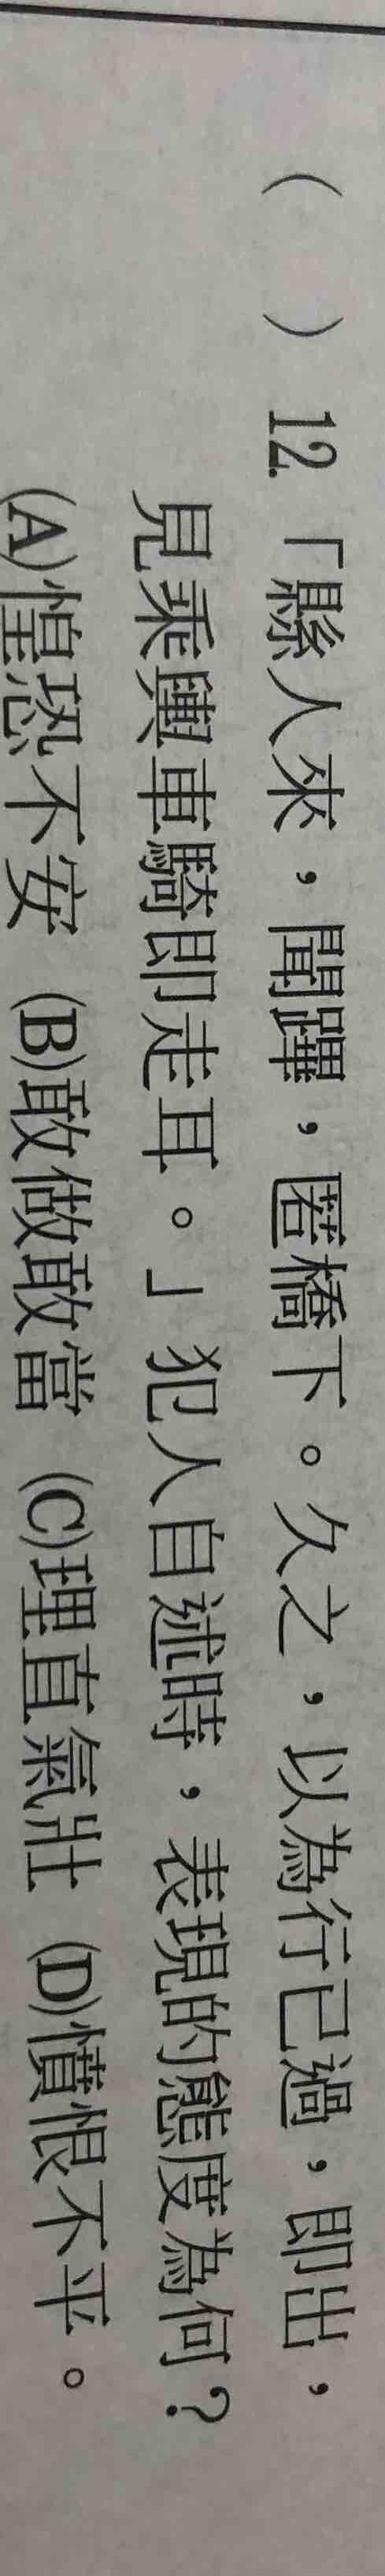 （　）12.「縣人來，聞蹕，匿橋下。久之，以為行已過，即出，
見乘輿車騎即走耳。」犯人自述時，表現的態度為何？
(A)惶恐不安 (B)敢做敢當 (C)理直氣壯 (D)憤恨不平。